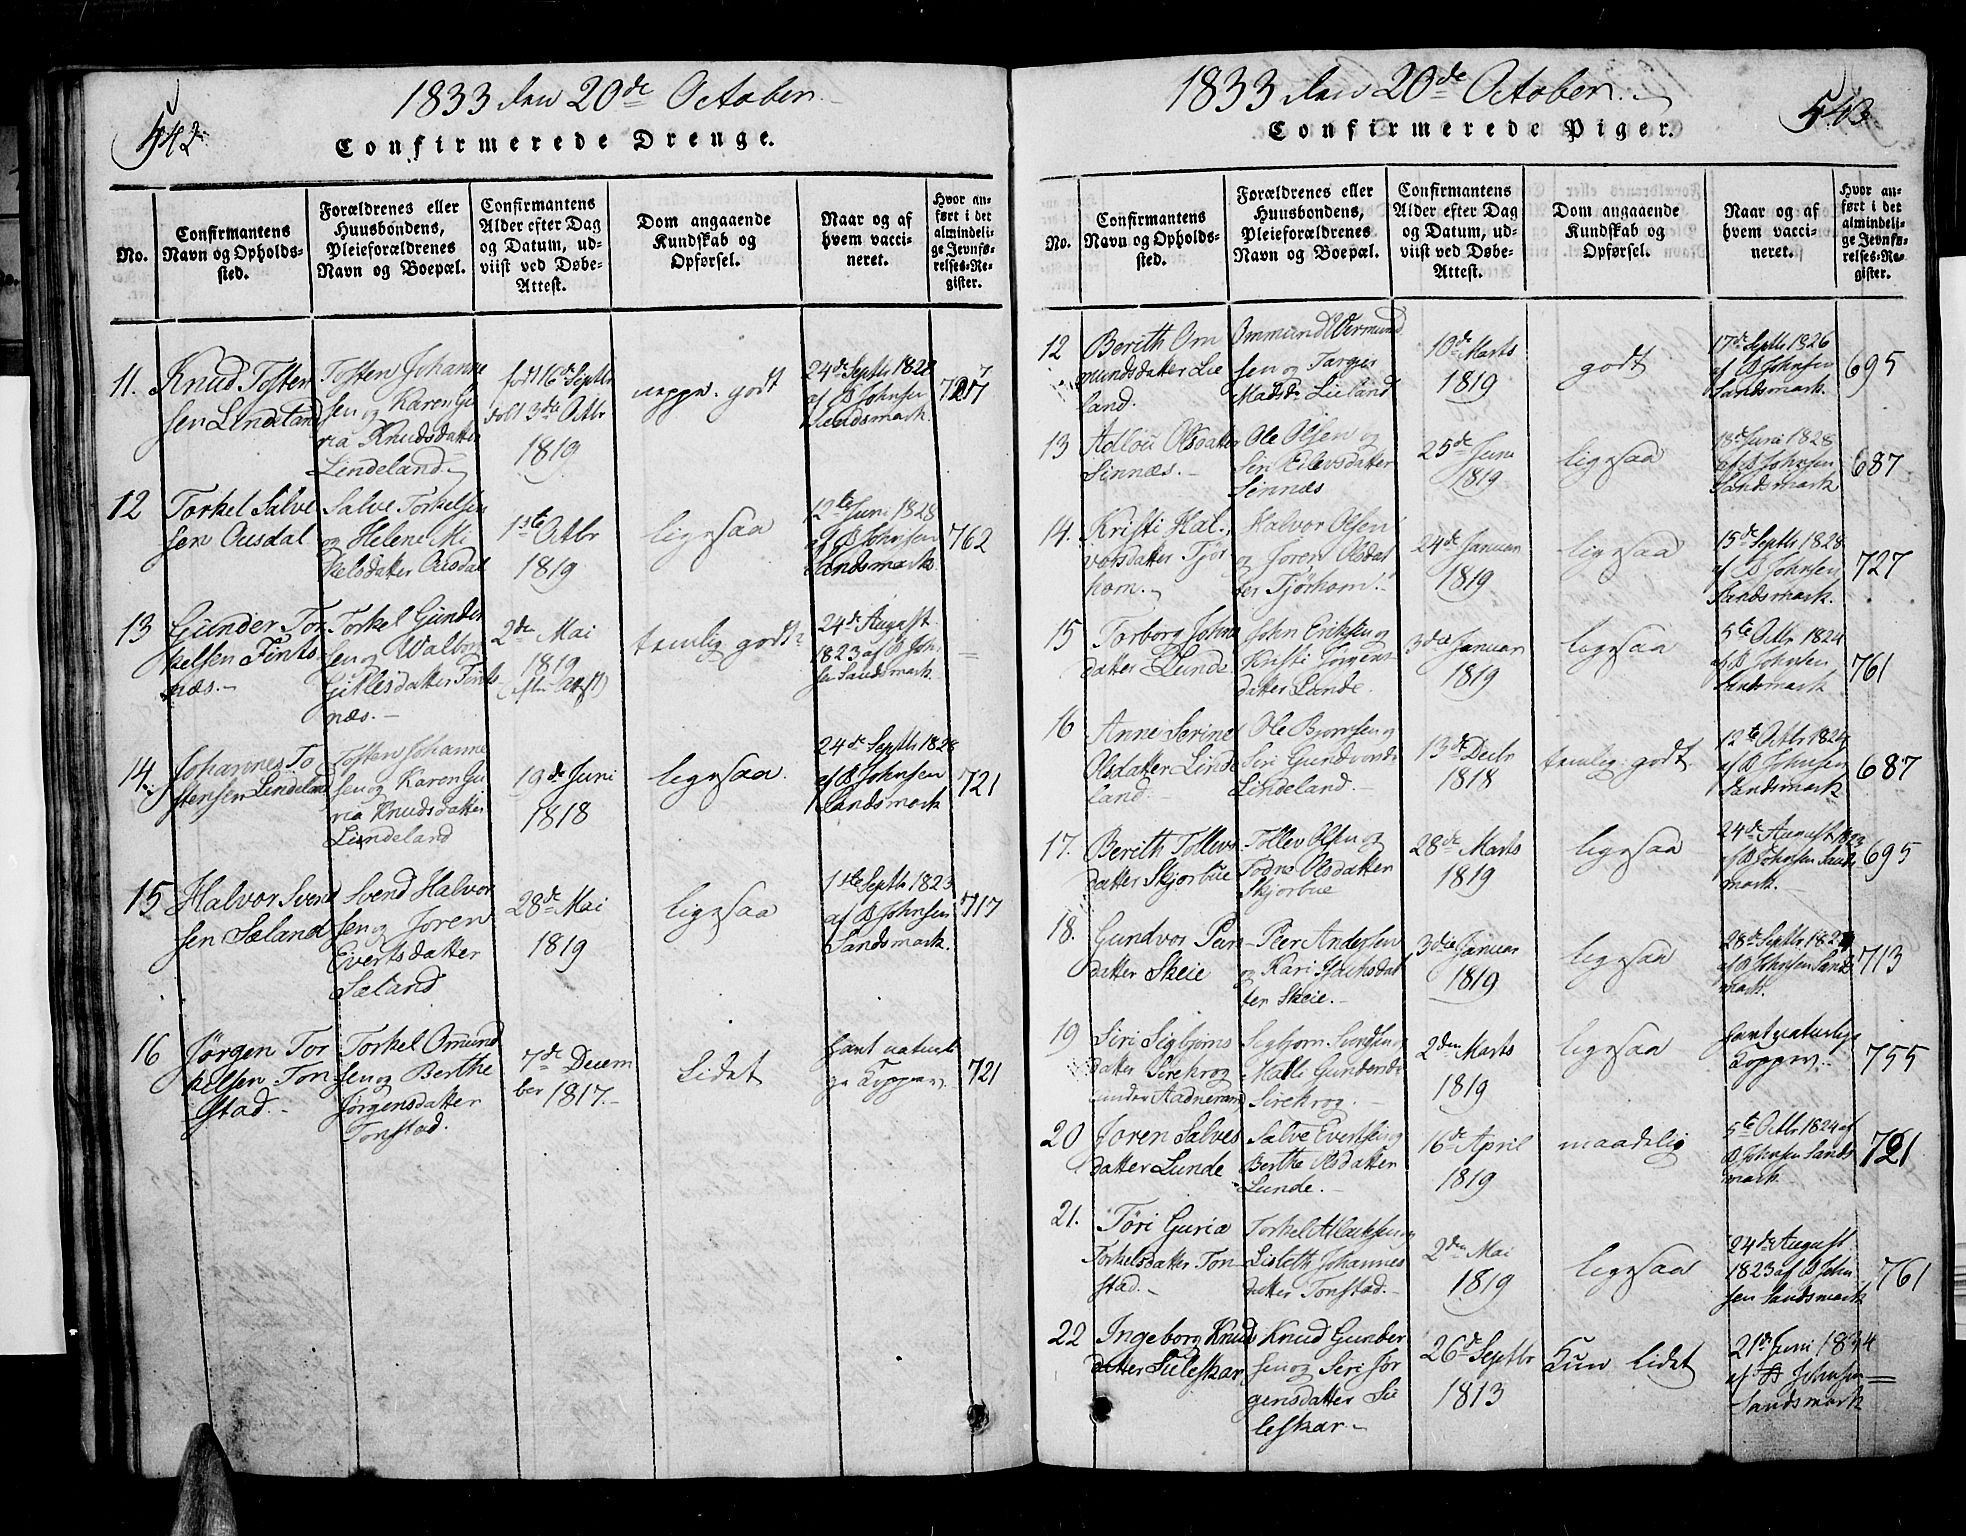 542
1833 den 20de October
Confirmerede Drenge.
No.
Confirmantens
Navn og Opholds-
sted.
Forældrenes eller
Huusbondens,
Pleieforældrenes
Navn og Boepæl.
Confirmantens
Alder efter Dag
og Datum, ud-
viist ved Døbe-
Attest.
Dom angaaende
Kundskab og
Opførsel.
Naar og af
hvem vacci-
neret.
Hvor an-
ført i det
almindeli-
ge Jevnfø-
relses-Re-
gister.
11.
Knud Tosten
sen Lindeland
Tosten Johanne
sen og Karen Gu
ria Knudsdatter
Lindeland.
født 16de Septbr
døbt 3die Octbr
1819
godt
24de Septbr 1828
af B Johnsen
Sandsmark.
12
Torkel Salve
sen Ousdal
Salve Torkelsen
og Helene Mi
kelsdatter Ousdal
1ste Octbr
1819
ligesaa
12te Juni 1828
af B Johnsen
Sandsmark.
762
13
Gunder Tor
kelsen Fints
næs.
Torkel Gunder
sen og Walbor
datter Fints
næs.
2den Mai
1819
(efter Attest)
temlig godt
24de August
1823 af B John
sen Sandsmark.
=
14.
Johannes To
stensen Lindeland
Tosten Johanne
sen og Karen Gu
ria Knudsdatter
Lindeland
19de Juni
1818
ligesaa.
24de Septbr 1828
af B Johnsen
Sandsmark
721
15
Halvor Svend
sen Sæland
Svend Halvor
sen og Joren
Evertsdatter
Sæland
28de Mai
1819
ligesaa
1ste Septbr 1823
af B Johnsen
Sandsmark.
717
16
Jørgen Tor
kelsen Ton
stad.
Torkel Omund
sen og Berthe
Jørgensdatter
Tonstad.
7de Decem
ber 1817.
Lidet
havt naturli
ge Kopper.
721
543
1833 den 20de October.
Confirmerede Piger.
No.
Confirmantens
Navn og Opholds-
sted.
Forældrenes eller
Huusbondens,
Pleieforældrenes
Navn og Boepæl.
Confirmantens
Alder efter Dag
og Datum, ud-
viist ved Døbe-
Attest.
Dom angaaende
Kundskab og
Opførsel.
Naar og af
hvem vacci-
neret.
Hvor an-
ført i det
almindeli-
ge Jevnfø-
relses-Re-
gister.
12
Berith Om
mundsdatter Lie
land.
Ommund Wermund
sen og Targer
Madsd. Lieland
10de Marts
1819
godt
17de Septbr 1826
af B Johnsen
Sandsmark.
695
13
Adlou Olsdatter
Sinnæs.
Ole Olsen og
Siri Eilevsdatter
Sinnæs
25de Juni
1819
ligesaa
18de Juni 1828
af B Johnsen
Sandsmark
687
14.
Kristi Hal
vorsdatter Tjør
hom.
Halvor Olsen
og Joren Olsdat
ter Tjørhom.
24de Januar
1819
ligesaa
15de Septbr 1828
af B Johnsen
Sandsmark.
727
15
Torborg Johns
datter Lunde
John Eriksen og
Kristi Jørgens
datter Lunde.
3die Januar
1819
ligesaa
5te Octbr 1824
af B Johnsen
Sandsmark
761
16
Anne Serine
Olsdatter Linde
land.
Ole Bjornsen og
Siri Gundvorsd.
Lindeland.
13de Decbr
1818
temlig godt
12te Octbr
af B Johnsen
Sandsmark
687
17.
Berith Tollevs
datter Skjorbue
Tollev Olsen og
Todne Olsdatter
Skjorbue
28de Marts
1819
ligesaa
24de August 1823
af B Johnsen Sands
mark.
695
18.
Gundvor Peers
datter Skeie
Peer Andersen
og Kari
ter Skeie.
3die Januar
1819
ligesaa
28de Septbr
af B Johnsen Sands
mark.
713
19
Siri Sigbjorns
datter Sirekrog
under Aadneram
Sigbjorn Svendsen og
Malli Gundersd.
Sirekrog.
2den Marts
1819
ligesaa
havt naturlige
Kopper.
755
20
Joren Salves
datter Lunde
Salve Evertsen og
Berthe Olsdatter
Lunde.
16de April
1819
maadelig
5te Octbr 1824 af
B Johnsen Sands
mark.
721
21.
Tøri Guriæ
Torkelsdatter Ton
stad.
Torkel Atlaksen og
Lisbeth Johannes
datter Tonstad.
2den Mai
1819
ligesaa
24de August
1823 af B John
sen Sandsmark
761
22
Ingeborg Knuds
datter Suleskar
Knud Gunder
sen og Siri Jør
gensdatter Su
leskar.
26de Septbr
1813
Kun lidet
21de Juni 1834
af B Johnsen
Sandsmark
=